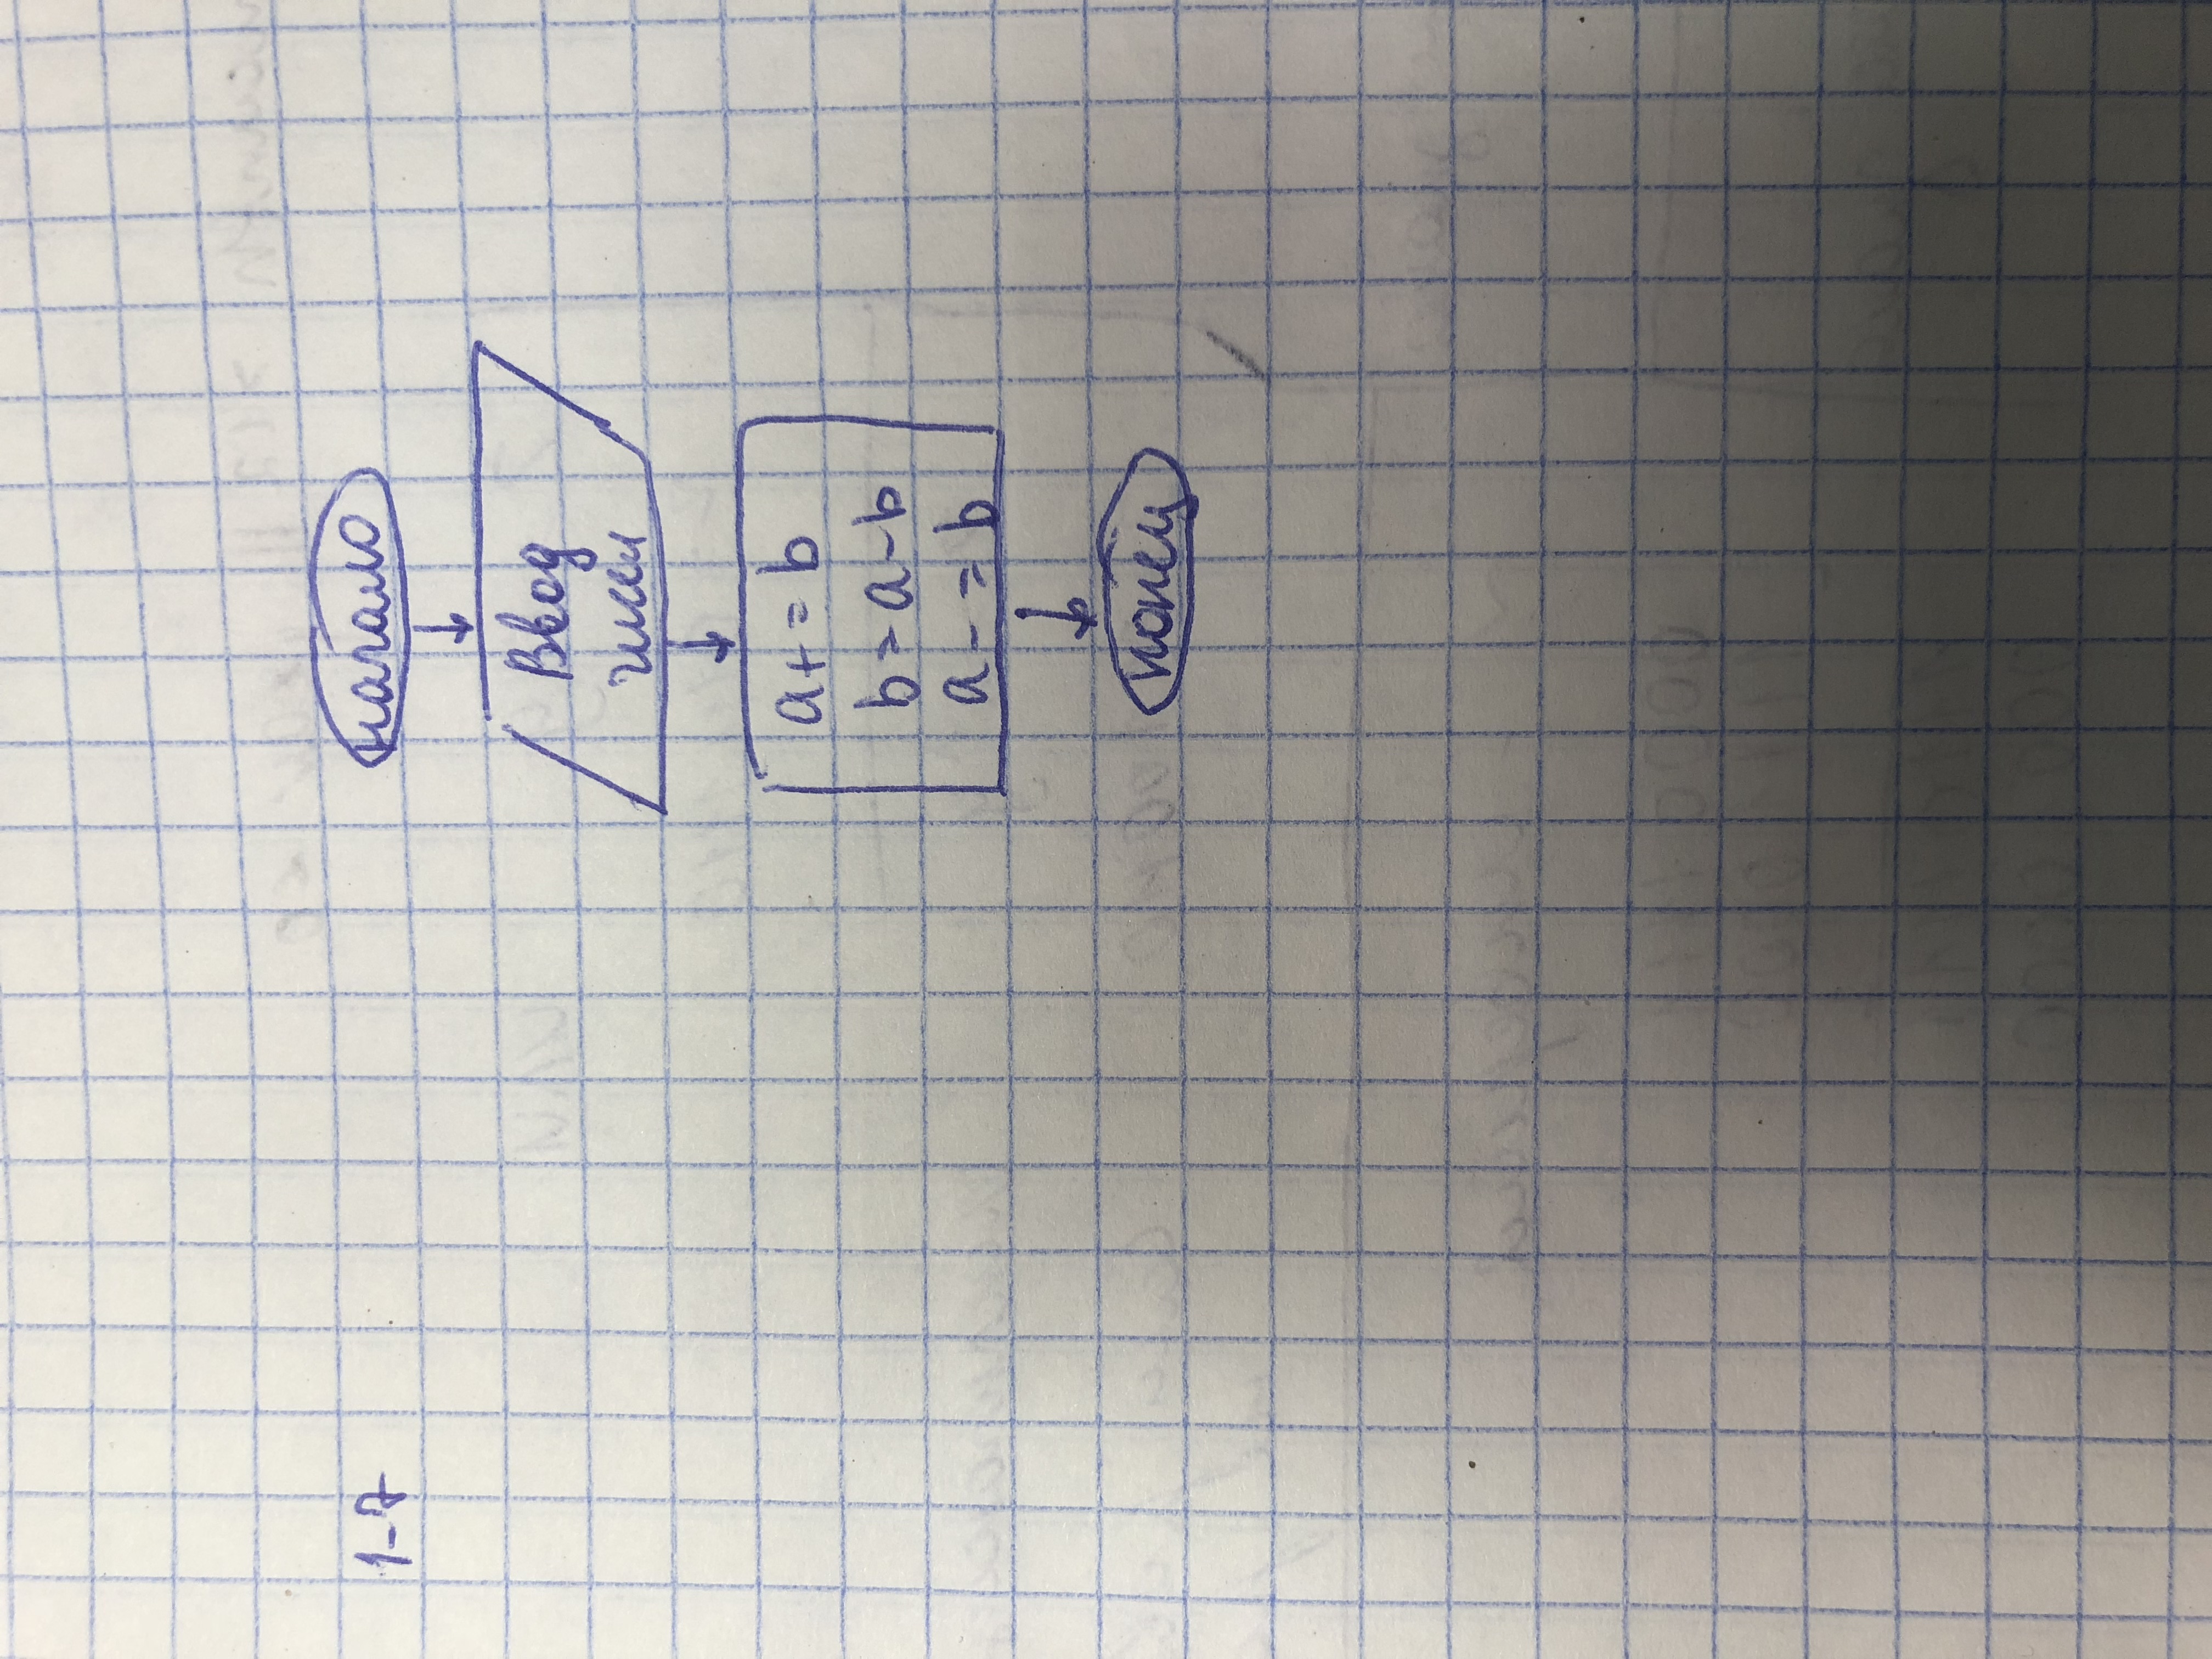 1-7
начало
Ввод
чисел
a+=b
b=a-b
a-=b
конец